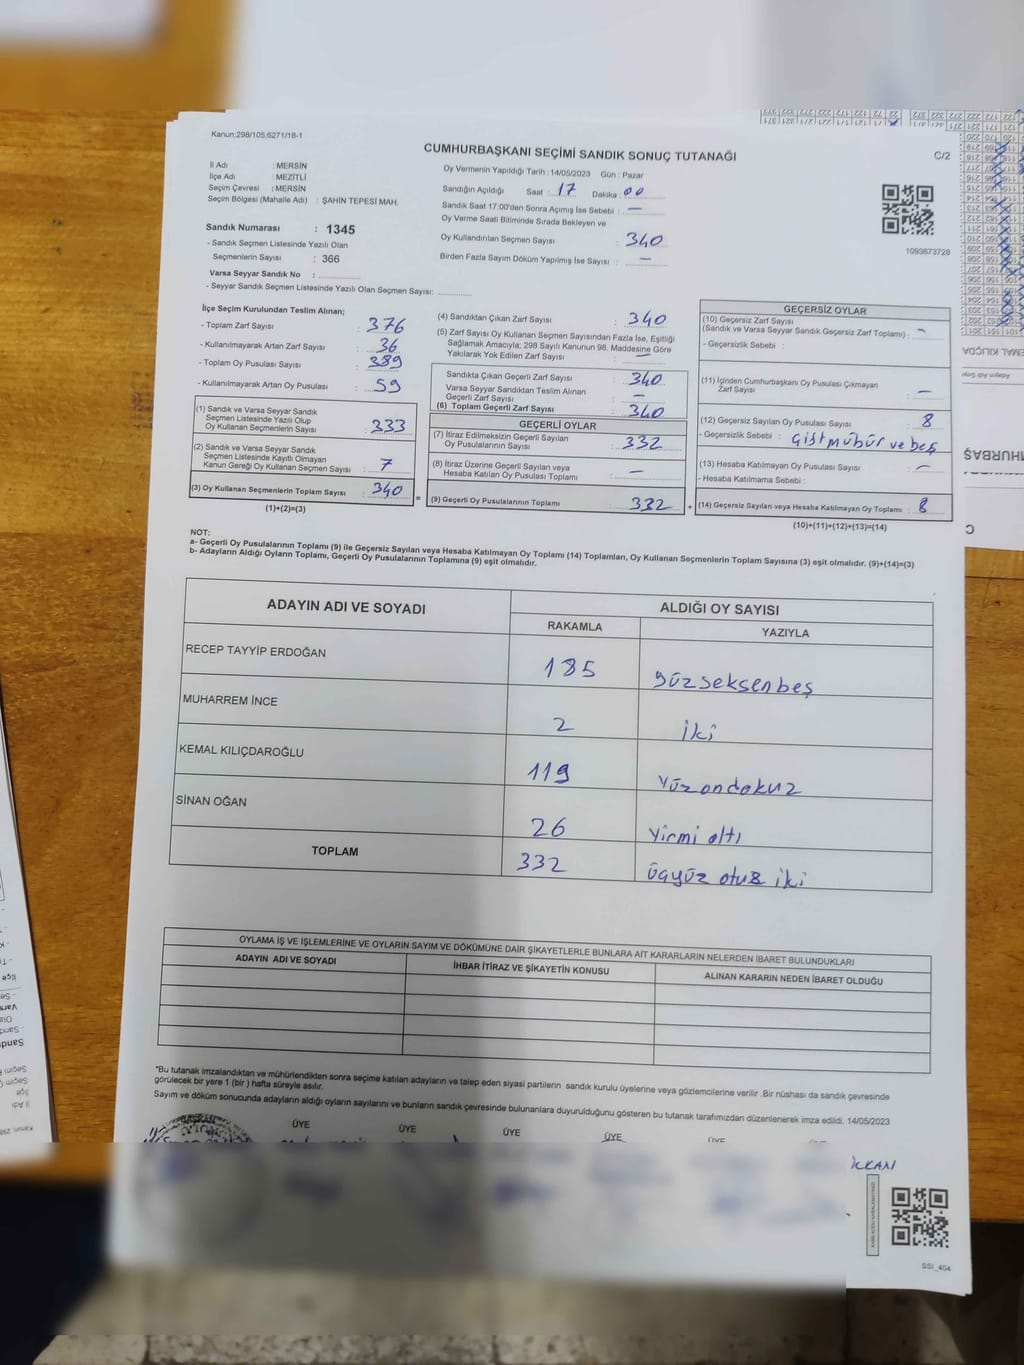 Kanun;298/105;6271/18-1
CUMHURBAŞKANI SEÇİMİ SANDIK SONUÇ TUTANAĞI
C/2
İl Adı : MERSİN
İlçe Adı : MEZİTLİ
Seçim Çevresi : MERSİN
Seçim Bölgesi (Mahalle Adı) : ŞAHİN TEPESİ MAH.
Sandık Numarası : 1345
- Sandık Seçmen Listesinde Yazılı Olan
Seçmenlerin Sayısı : 366
Varsa Seyyar Sandık No :
- Seyyar Sandık Seçmen Listesinde Yazılı Olan Seçmen Sayısı:
Oy Vermenin Yapıldığı Tarih : 14/05/2023 Gün : Pazar
Sandığın Açıldığı Saat : 17 Dakika : 00
Sandık Saat 17:00'den Sonra Açımış İse Sebebi : —
Oy Verme Saati Bitiminde Sırada Bekleyen ve
Oy Kullandırılan Seçmen Sayısı : 340
Birden Fazla Sayım Döküm Yapılmış İse Sayısı : —
1093673728
İlçe Seçim Kurulundan Teslim Alınan;
- Toplam Zarf Sayısı : 376
- Kullanılmayarak Artan Zarf Sayısı : 36
- Toplam Oy Pusulası Sayısı : 389
- Kullanılmayarak Artan Oy Pusulası : 59
(1) Sandık ve Varsa Seyyar Sandık
Seçmen Listesinde Yazılı Olup
Oy Kullanan Seçmenlerin Sayısı : 333
(2) Sandık ve Varsa Seyyar Sandık
Seçmen Listesinde Kayıtlı Olmayan
Kanun Gereği Oy Kullanan Seçmen Sayısı : 7
(3) Oy Kullanan Seçmenlerin Toplam Sayısı : 340
(1)+(2)=(3)
(4) Sandıktan Çıkan Zarf Sayısı : 340
(5) Zarf Sayısı Oy Kullanan Seçmen Sayısından Fazla İse, Eşitliği
Sağlamak Amacıyla; 298 Sayılı Kanunun 98. Maddesine Göre
Yakılarak Yok Edilen Zarf Sayısı : —
Sandıkta Çıkan Geçerli Zarf Sayısı : 340
Varsa Seyyar Sandıktan Teslim Alınan
Geçerli Zarf Sayısı : —
(6) Toplam Geçerli Zarf Sayısı : 340
GEÇERLİ OYLAR
(7) İtiraz Edilmeksizin Geçerli Sayılan
Oy Pusulalarının Sayısı : 332
(8) İtiraz Üzerine Geçerli Sayılan veya
Hesaba Katılan Oy Pusulası Toplamı : —
(9) Geçerli Oy Pusulalarının Toplamı : 332
GEÇERSİZ OYLAR
(10) Geçersiz Zarf Sayısı
(Sandık ve Varsa Seyyar Sandık Geçersiz Zarf Toplamı) : —
- Geçersizlik Sebebi :
(11) İçinden Cumhurbaşkanı Oy Pusulası Çıkmayan
Zarf Sayısı : —
(12) Geçersiz Sayılan Oy Pusulası Sayısı : 8
- Geçersizlik Sebebi : Çift mühür ve boş
(13) Hesaba Katılmayan Oy Pusulası Sayısı : —
- Hesaba Katılmama Sebebi :
(14) Geçersiz Sayılan veya Hesaba Katılmayan Oy Toplamı : 8
(10)+(11)+(12)+(13)=(14)
NOT:
a- Geçerli Oy Pusulalarının Toplamı (9) ile Geçersiz Sayılan veya Hesaba Katılmayan Oy Toplamı (14) Toplamları, Oy Kullanan Seçmenlerin Toplam Sayısına (3) eşit olmalıdır. (9)+(14)=(3)
b- Adayların Aldığı Oyların Toplamı, Geçerli Oy Pusulalarının Toplamına (9) eşit olmalıdır.
ADAYIN ADI VE SOYADI
ALDIĞI OY SAYISI
RAKAMLA YAZIYLA
RECEP TAYYİP ERDOĞAN 185 yüzseksenbeş
MUHARREM İNCE 2 iki
KEMAL KILIÇDAROĞLU 119 Yüzondokuz
SİNAN OĞAN 26 Yirmi altı
TOPLAM 332 üçyüz otuz iki
OYLAMA İŞ VE İŞLEMLERİNE VE OYLARIN SAYIM VE DÖKÜMÜNE DAİR ŞİKAYETLERLE BUNLARA AİT KARARLARIN NELERDEN İBARET BULUNDUKLARI
ADAYIN ADI VE SOYADI İHBAR İTİRAZ VE ŞİKAYETİN KONUSU ALINAN KARARIN NEDEN İBARET OLDUĞU
"Bu tutanak imzalandıktan ve mühürlendikten sonra seçime katılan adayların ve talep eden siyasi partilerin sandık kurulu üyelerine veya gözlemcilerine verilir .Bir nüshası da sandık çevresinde
görülecek bir yere 1 (bir ) hafta süreyle asılır.
Sayım ve döküm sonucunda adayların aldığı oyların sayılarını ve bunların sandık çevresinde bulunanlara duyurulduğunu gösteren bu tutanak tarafımızdan düzenlenerek imza edildi. 14/05/2023
ÜYE ÜYE ÜYE ÜYE ÜYE
SSI_404